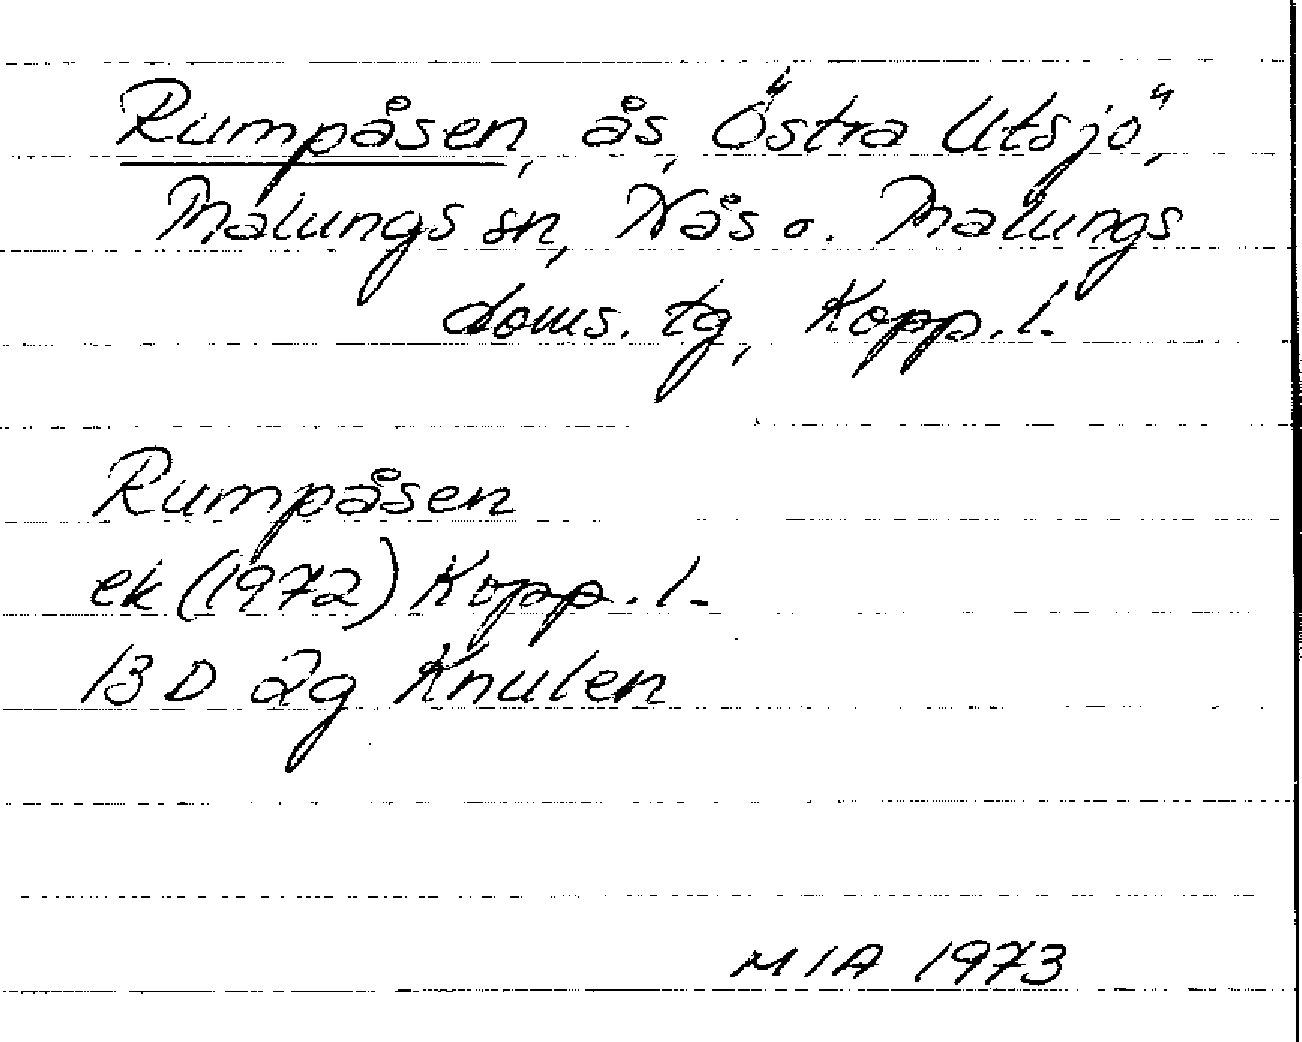 Rumpåsen, ås, Östra Utsjö,
Malungs sn, Nås o. Malungs
doms. tg, Kopp. l.
Rumpåsen
ek (1972) Kopp. l.
13 D 2g Knulen
MIA 1973